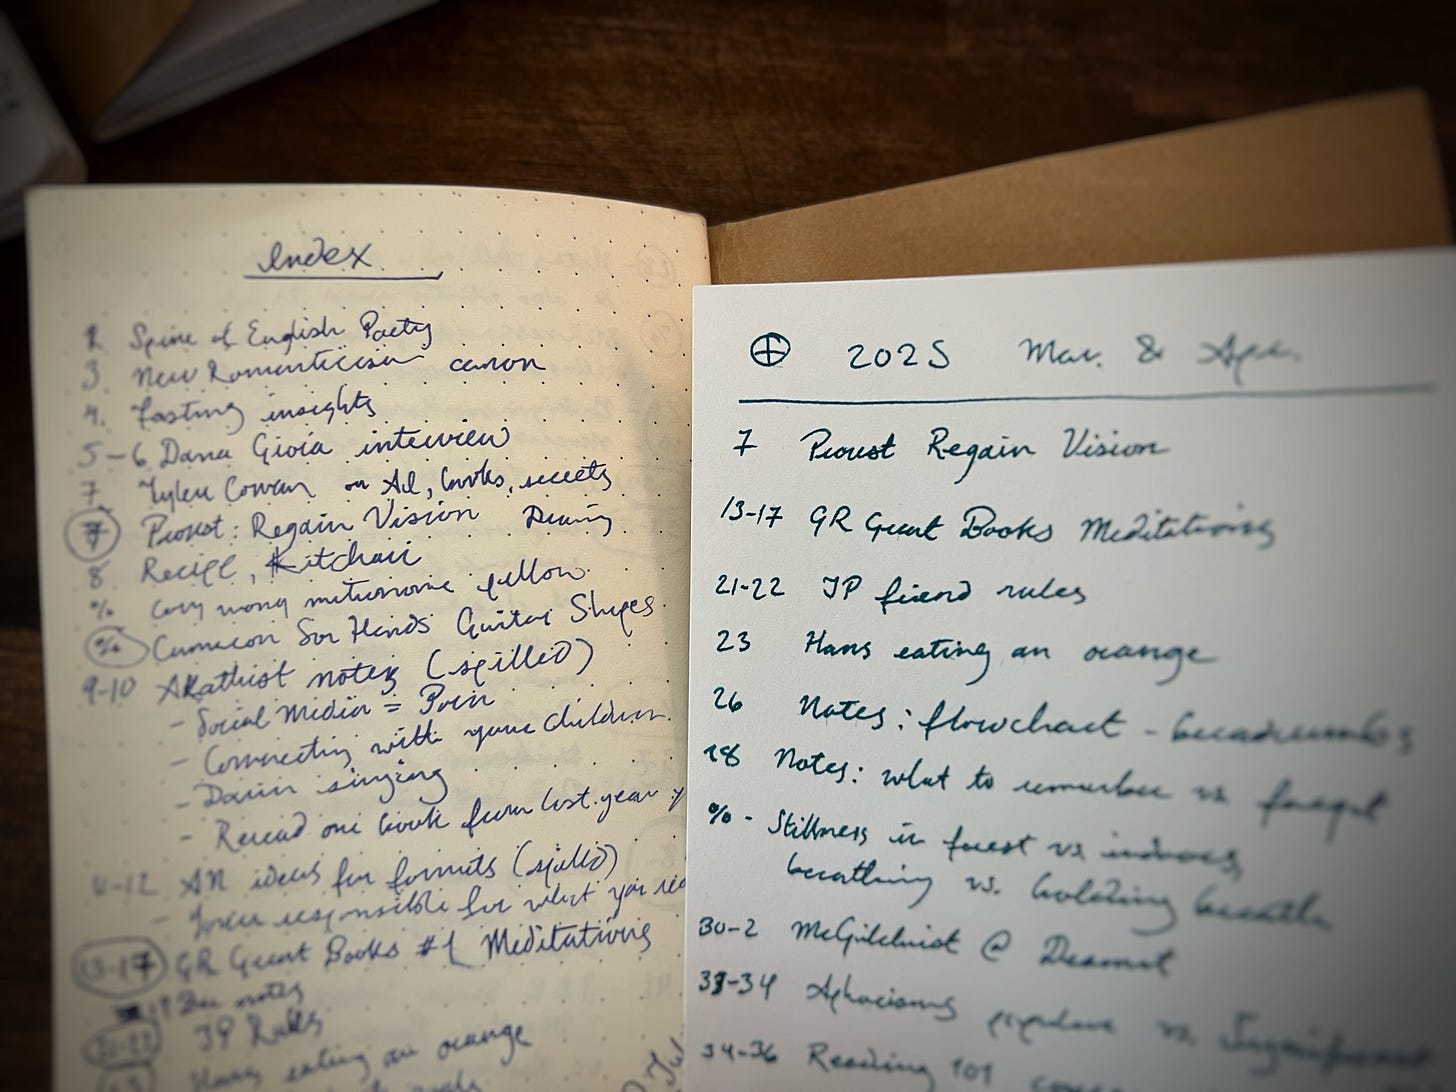 Index
2 Spine of English Poetry
3 New Romanticism canon
4. Fasting insights
5-6 Dana Gioia interview
7 Tyler Cowan on AI, books, secrets
7 Proust: Regain Vision Drawing
8 Recipe, Kitchari
% Cory Wong metronome
% Sor Hands Guitar Shapes
9-10 Akathist notes (spilled)
- Social Media = Porn
- Connecting with your children
- Dawn singing
- Reread one book from last year
11-12 AN ideas for formats (spilled)
- You're responsible for what you
13-17 GR Great Books #1 Meditations
notes
JP Rules
Hans eating an orange
⊕ 2025 Mar. & Apr.
7 Proust Regain Vision
13-17 GR Great Books Meditations
21-22 JP friend rules
23 Hans eating an orange
26 Notes: flowchart - breadcrumbs
28 Notes: what to remember vs forget
% - Stillness in forest vs indoors
breathing vs. holding breath
30-2 McGilchrist @ Dramut
33-34 Aphorisms vs. Significant
34-36 Reading 101